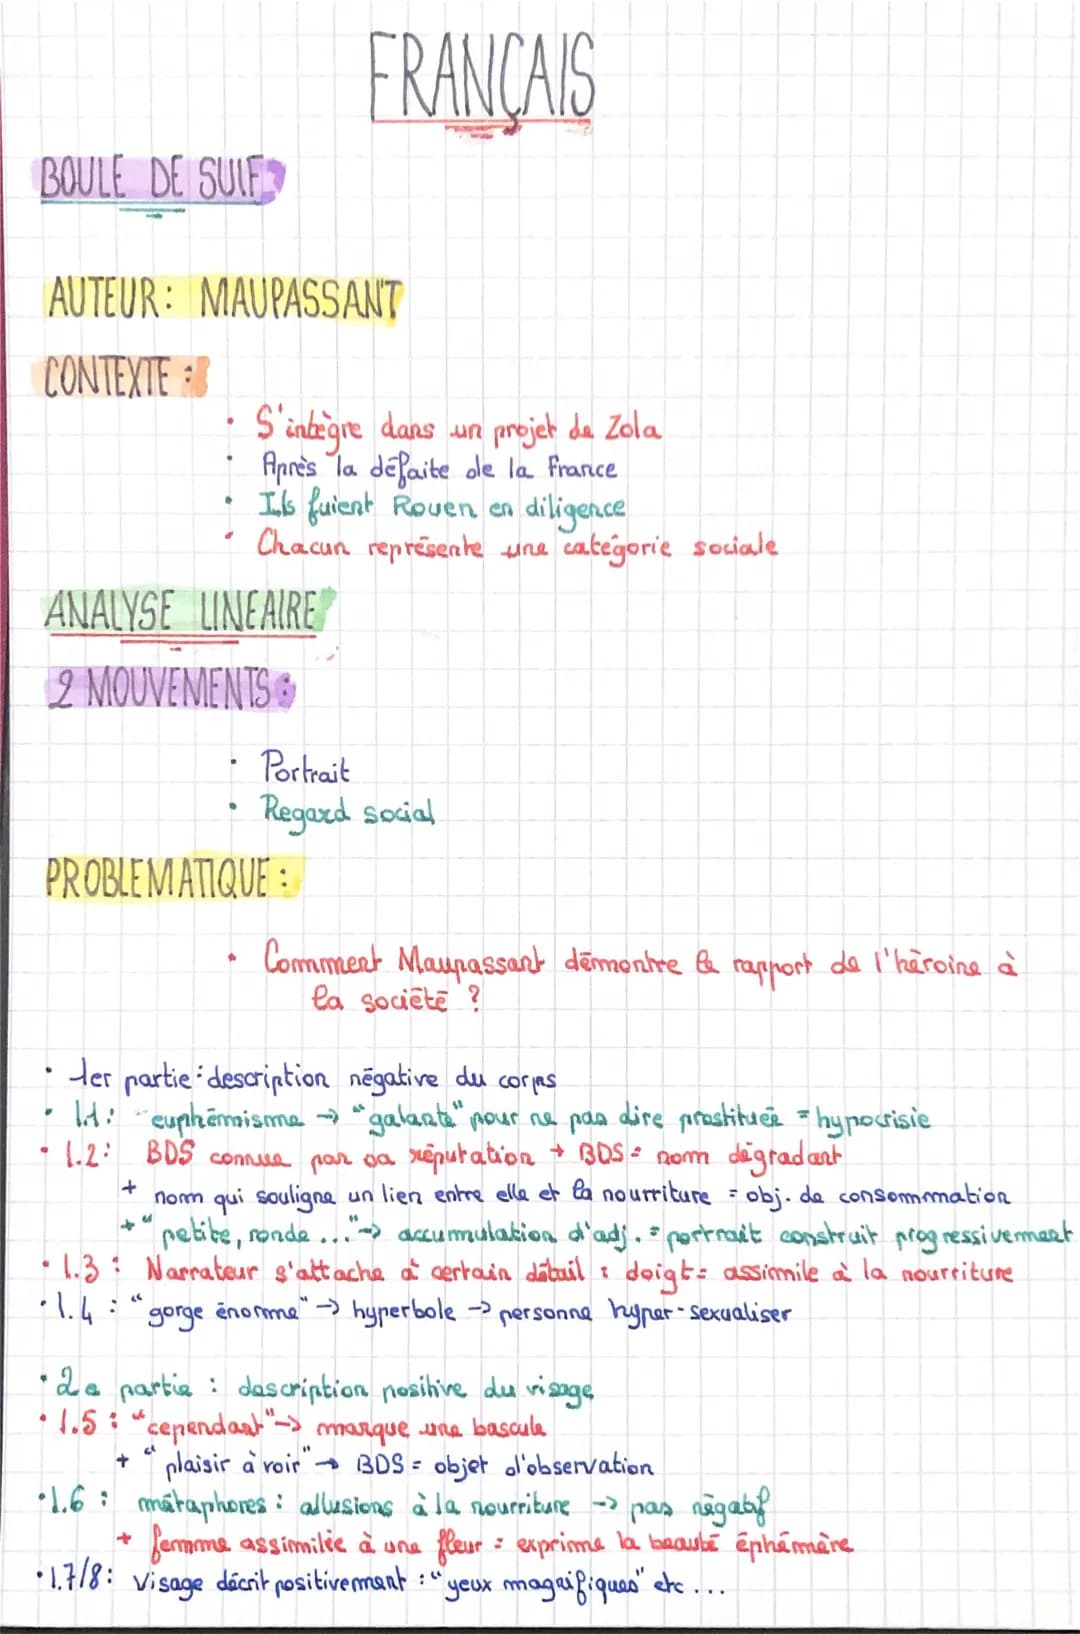 FRANÇAIS
BOULE DE SUIF
AUTEUR : MAUPASSANT
CONTEXTE :
· S'intègre dans un projet de Zola
· Après la défaite de la France
· Ils fuient Rouen en diligence
· Chacun représente une catégorie sociale
ANALYSE LINEAIRE
2 MOUVEMENTS :
· Portrait
· Regard social
PROBLEMATIQUE :
· Comment Maupassant démontre le rapport de l'héroïne à
la société ?
· 1er partie : description négative du corps
· l.1 : euphémisme → "galante" pour ne pas dire prostituée = hypocrisie
· l.2 : BDS connue par sa réputation + BDS = nom dégradant
+ nom qui souligne un lien entre elle et la nourriture = obj. de consommation
+ "petite, ronde ..." → accumulation d'adj. = portrait construit progressivement
· l.3 : Narrateur s'attache à certain détail : doigt = assimile à la nourriture
· l.4 : "gorge énorme" → hyperbole → personne hyper-sexualiser
· 2e partie : description positive du visage
· l.5 : "cependant" → marque une bascule
+ "plaisir à voir" → BDS = objet d'observation
· l.6 : métaphores : allusions à la nourriture → pas négatif
+ femme assimilée à une fleur = exprime la beauté éphémère
· l.7/8 : Visage décrit positivement : "yeux magnifiques" etc ...